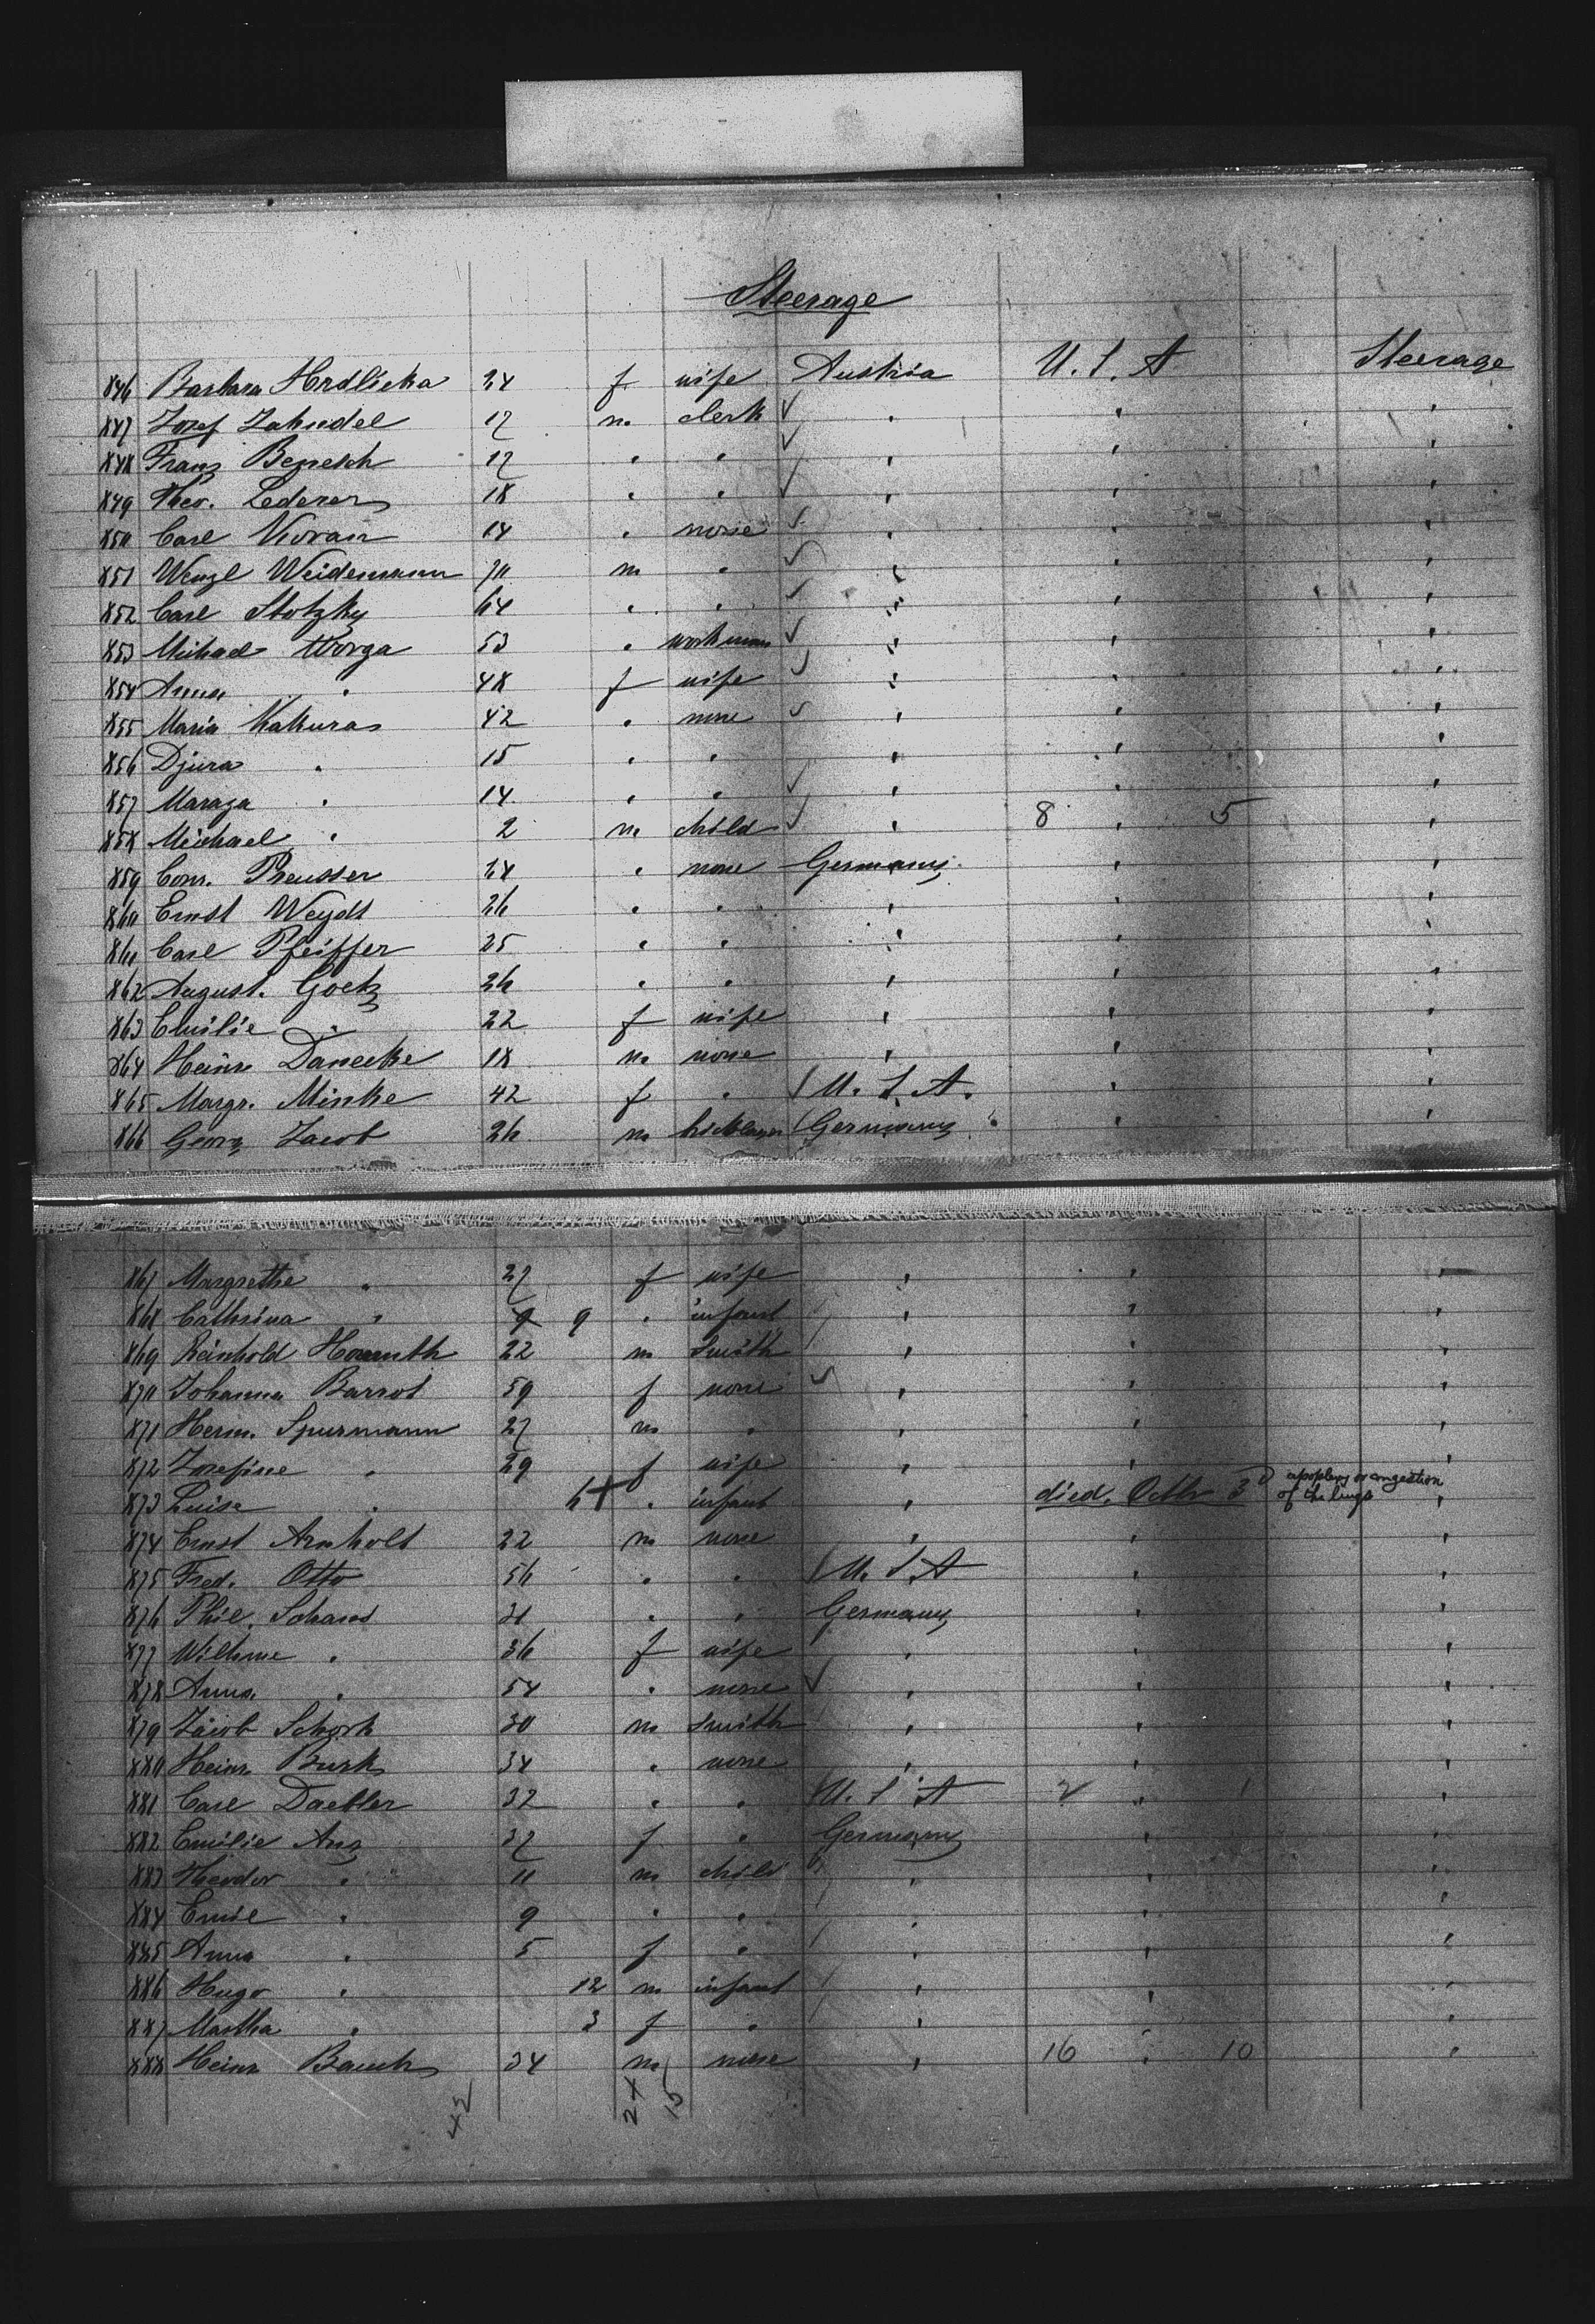 Steerage
846 Barbara Hrdlicka 24 f wife Austria U.S.A Steerage
847 Josef Zahudel 17 m. clerk ✓ " " "
848 Franz Benesch 17 " " ✓ " " "
849 Theo. Lederer 18 " " ✓ " " "
850 Carl Kovarr 14 " none ✓ " " "
851 Wenzl Weidemann 70 m " ✓ " " "
852 Carl Stotzky 64 " " ✓ " " "
853 Michael Worga 53 " workman ✓ " " "
854 Anna " 48 f wife ✓ " " "
855 Maria Kakuras 42 " none ✓ " " "
856 Djura " 15 " " " " "
857 Maraga " 14 " " ✓ " " "
858 Michael " 2 m child ✓ " 8 " 5 "
859 Conr. Preusser 24 " none Germany " "
860 Ernst Weydt 26 " " " " "
861 Carl Pfeiffer 25 " " " " "
862 August. Goetz 26 " " " " "
863 Emilie " 22 f wife " " "
864 Heinr. Danecke 18 m none " " "
865 Margr. Minke 42 f " U.S.A. " "
866 Georg Jacob 26 m bricklayer Germany " "
867 Margrethe " 27 f wife " " "
868 Cathrina " 9 " infant " " "
869 Reinhold 22 m Smith " " "
870 Johanna Barrot 59 f none ✓ " " "
871 Herm. Spurmann 27 m " " " "
872 Josefine " 29 f wife " " "
873 Luise " 6 + " infant " died. Octbr 3d apoplexy or congestion of the lungs "
874 Ernst Arnholt 22 m none " " "
875 Fred. Otto 56 " " U.S.A " "
876 Phil. Schaus 31 " " Germany " "
877 Wilhme " 36 f wife " " "
878 Anna " 54 " none ✓ " " "
879 Jacob Schork 30 m Smith " " "
880 Heinr. Burk 34 " none " " "
881 Carl Daebler 32 " " U.S.A 2 " 1 "
882 Emilie Anz 37 f " Germany " "
883 Theodor " 11 m child " " "
884 Emil " 9 " " " " "
885 Anna " 5 f " " " "
886 Hugo " 12 m infant " " "
887 Martha " 3 f " " "
888 Heinr Bauch 34 m none " 16 " 10 "
42 27 15